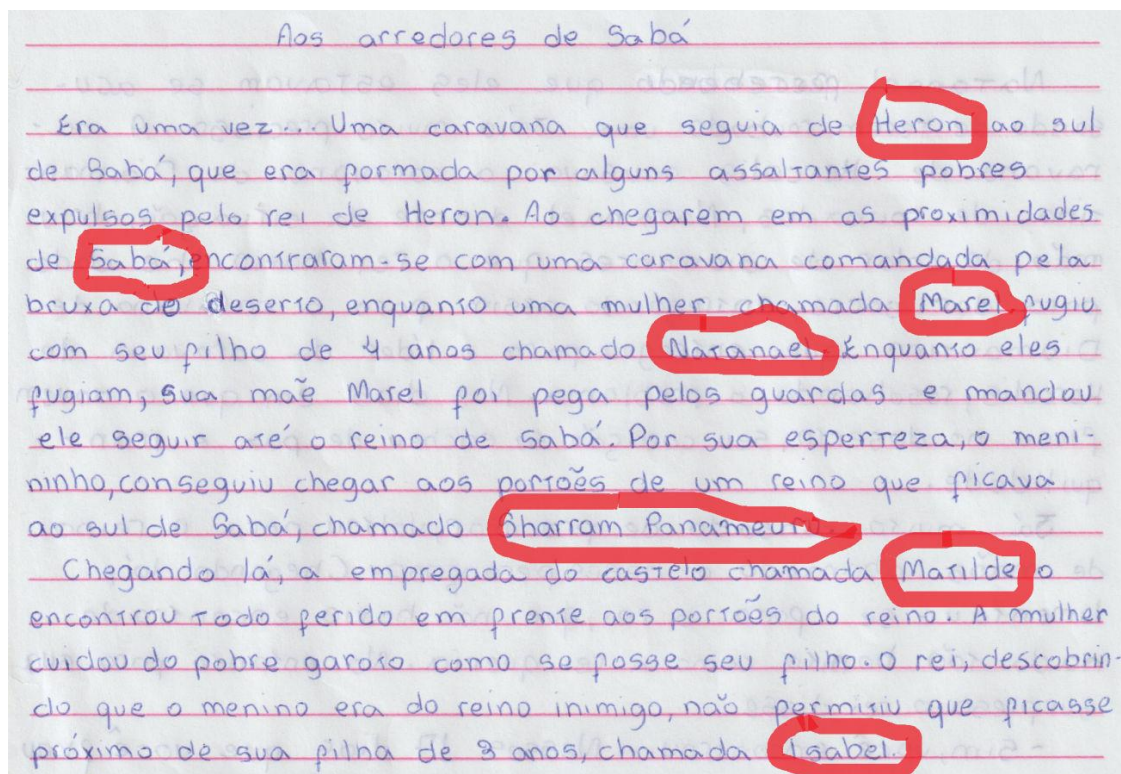 Aos arredores de Sabá
Era uma vez... Uma caravana que seguia de Heron ao sul
de Sabá, que era formada por alguns assaltantes pobres
expulsos pelo rei de Heron. Ao chegarem em as proximidades
de Sabá, encontraram-se com uma caravana comandada pela
bruxa do deserto, enquanto uma mulher chamada Marel fugiu
com seu filho de 4 anos chamado Natanael. Enquanto eles
fugiam, sua mãe Marel foi pega pelos guardas e mandou
ele seguir até o reino de Sabá. Por sua esperteza, o meni-
ninho, conseguiu chegar aos portões de um reino que ficava
ao sul de Sabá, chamado Sharram
Chegando lá, a empregada do castelo chamada Matilde o
encontrou todo ferido em frente aos portões do reino. A mulher
cuidou do pobre garoto como se fosse seu filho. O rei, descobrin-
do que o menino era do reino inimigo, não permitiu que ficasse
próximo de sua filha de 3 anos, chamada Isabel.